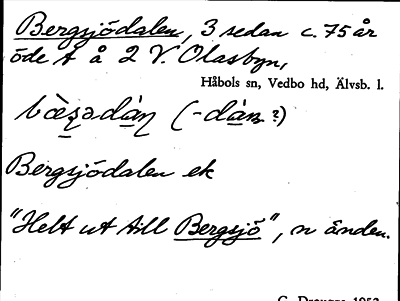 Bergsjödalen, 3 sedan c. 75 år
öde t å 2 V. Olasbyn,
Håbols sn, Vedbo hd, Älvsb. l.
Bergsjödalen ek
"Helt ut till Bergsjö", n änden.